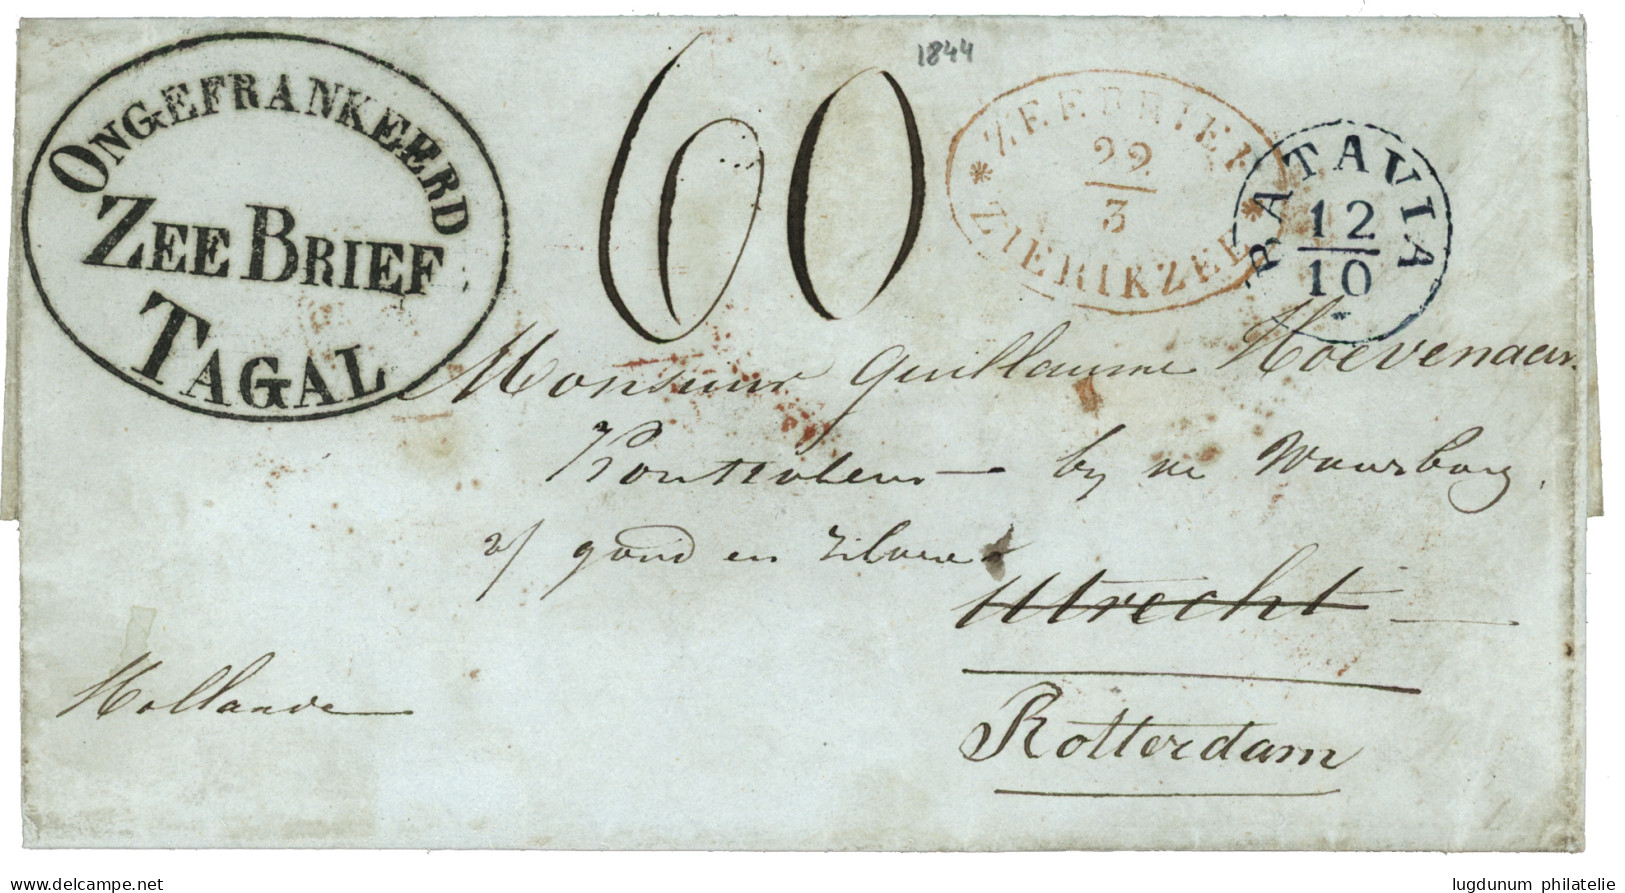 ONGEFRANKEERD
ZEE BRIEF
TAGAL
60
1844
* ZEEBRIEF *
22
3
ZIERIKZEE
BATAVIA
12
10
Monsieur Guillaume Hoevenaar
Kontroleur by de Waarborg
v/ goud en zilver
Utrecht
Hollande
Rotterdam
lugdunum philatelie